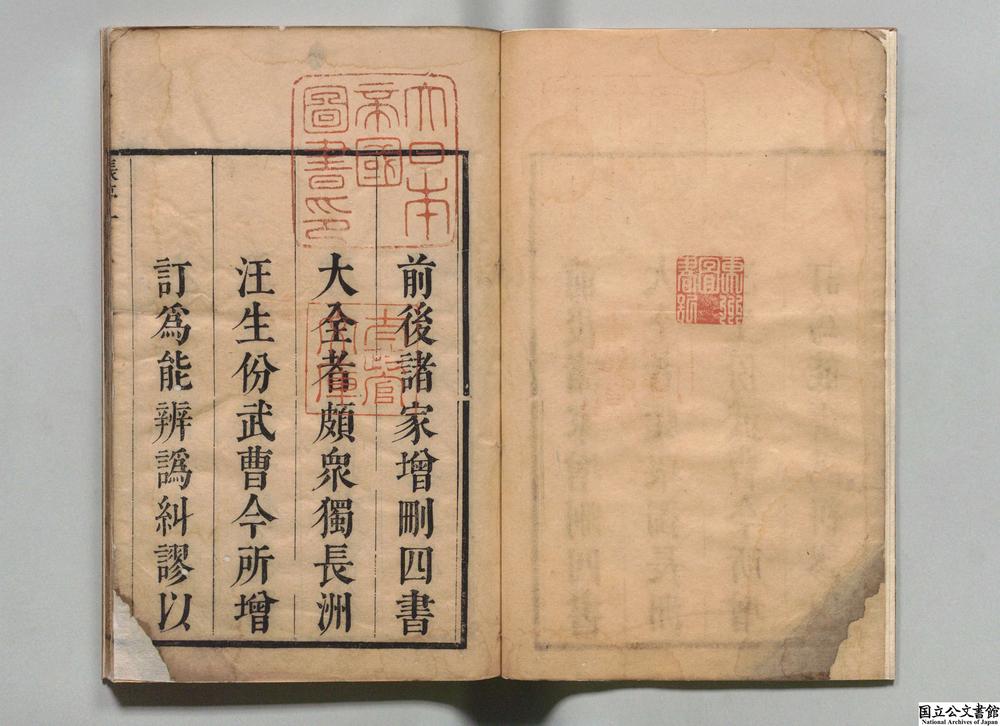 前後諸家增刪四書
大全者頗衆獨長洲
汪生份武曹今所增
訂爲能辨譌糾謬以
大日本
帝國
圖書印
太政官
文庫
国立公文書館
National Archives of Japan